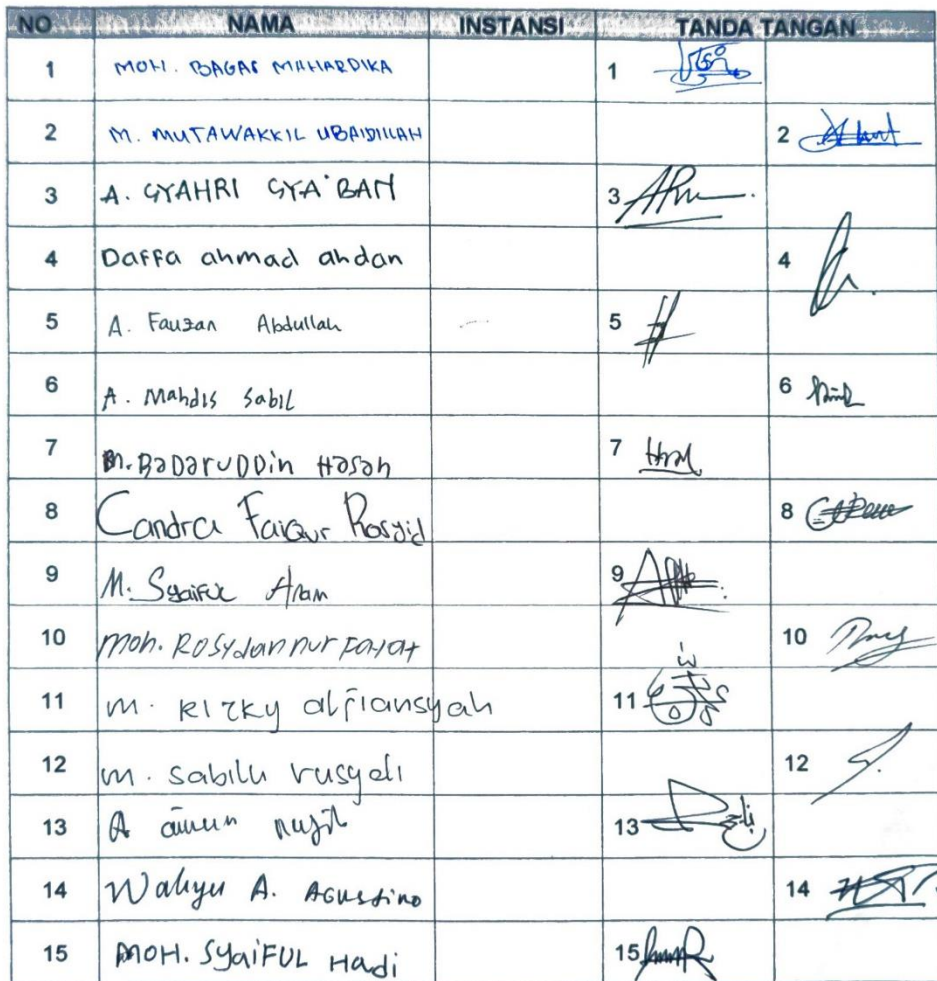 NO NAMA INSTANSI TANDA TANGAN
1 MOH. BAGAS MAHARDIKA 1
2 M. MUTAWAKKIL UBAIDILLAH 2
3 A. SYAHRI SYA'BAN 3
4 Daffa ahmad ahdan 4
5 A. Fauzan Abdullah 5
6 A. Mahdis Sabil 6
7 M. BaDaruDDin Hasan 7
8 Candra Faiqur Rosyid 8
9 M. Syaiful Anam 9
10 Moh. ROSydan nur 10
11 M. RIZKY alfiansyah 11
12 M. sabilu rusydi 12
13 A ainun najib 13
14 Wahyu A. AGUStino 14
15 MOH. SyaiFUL Hadi 15